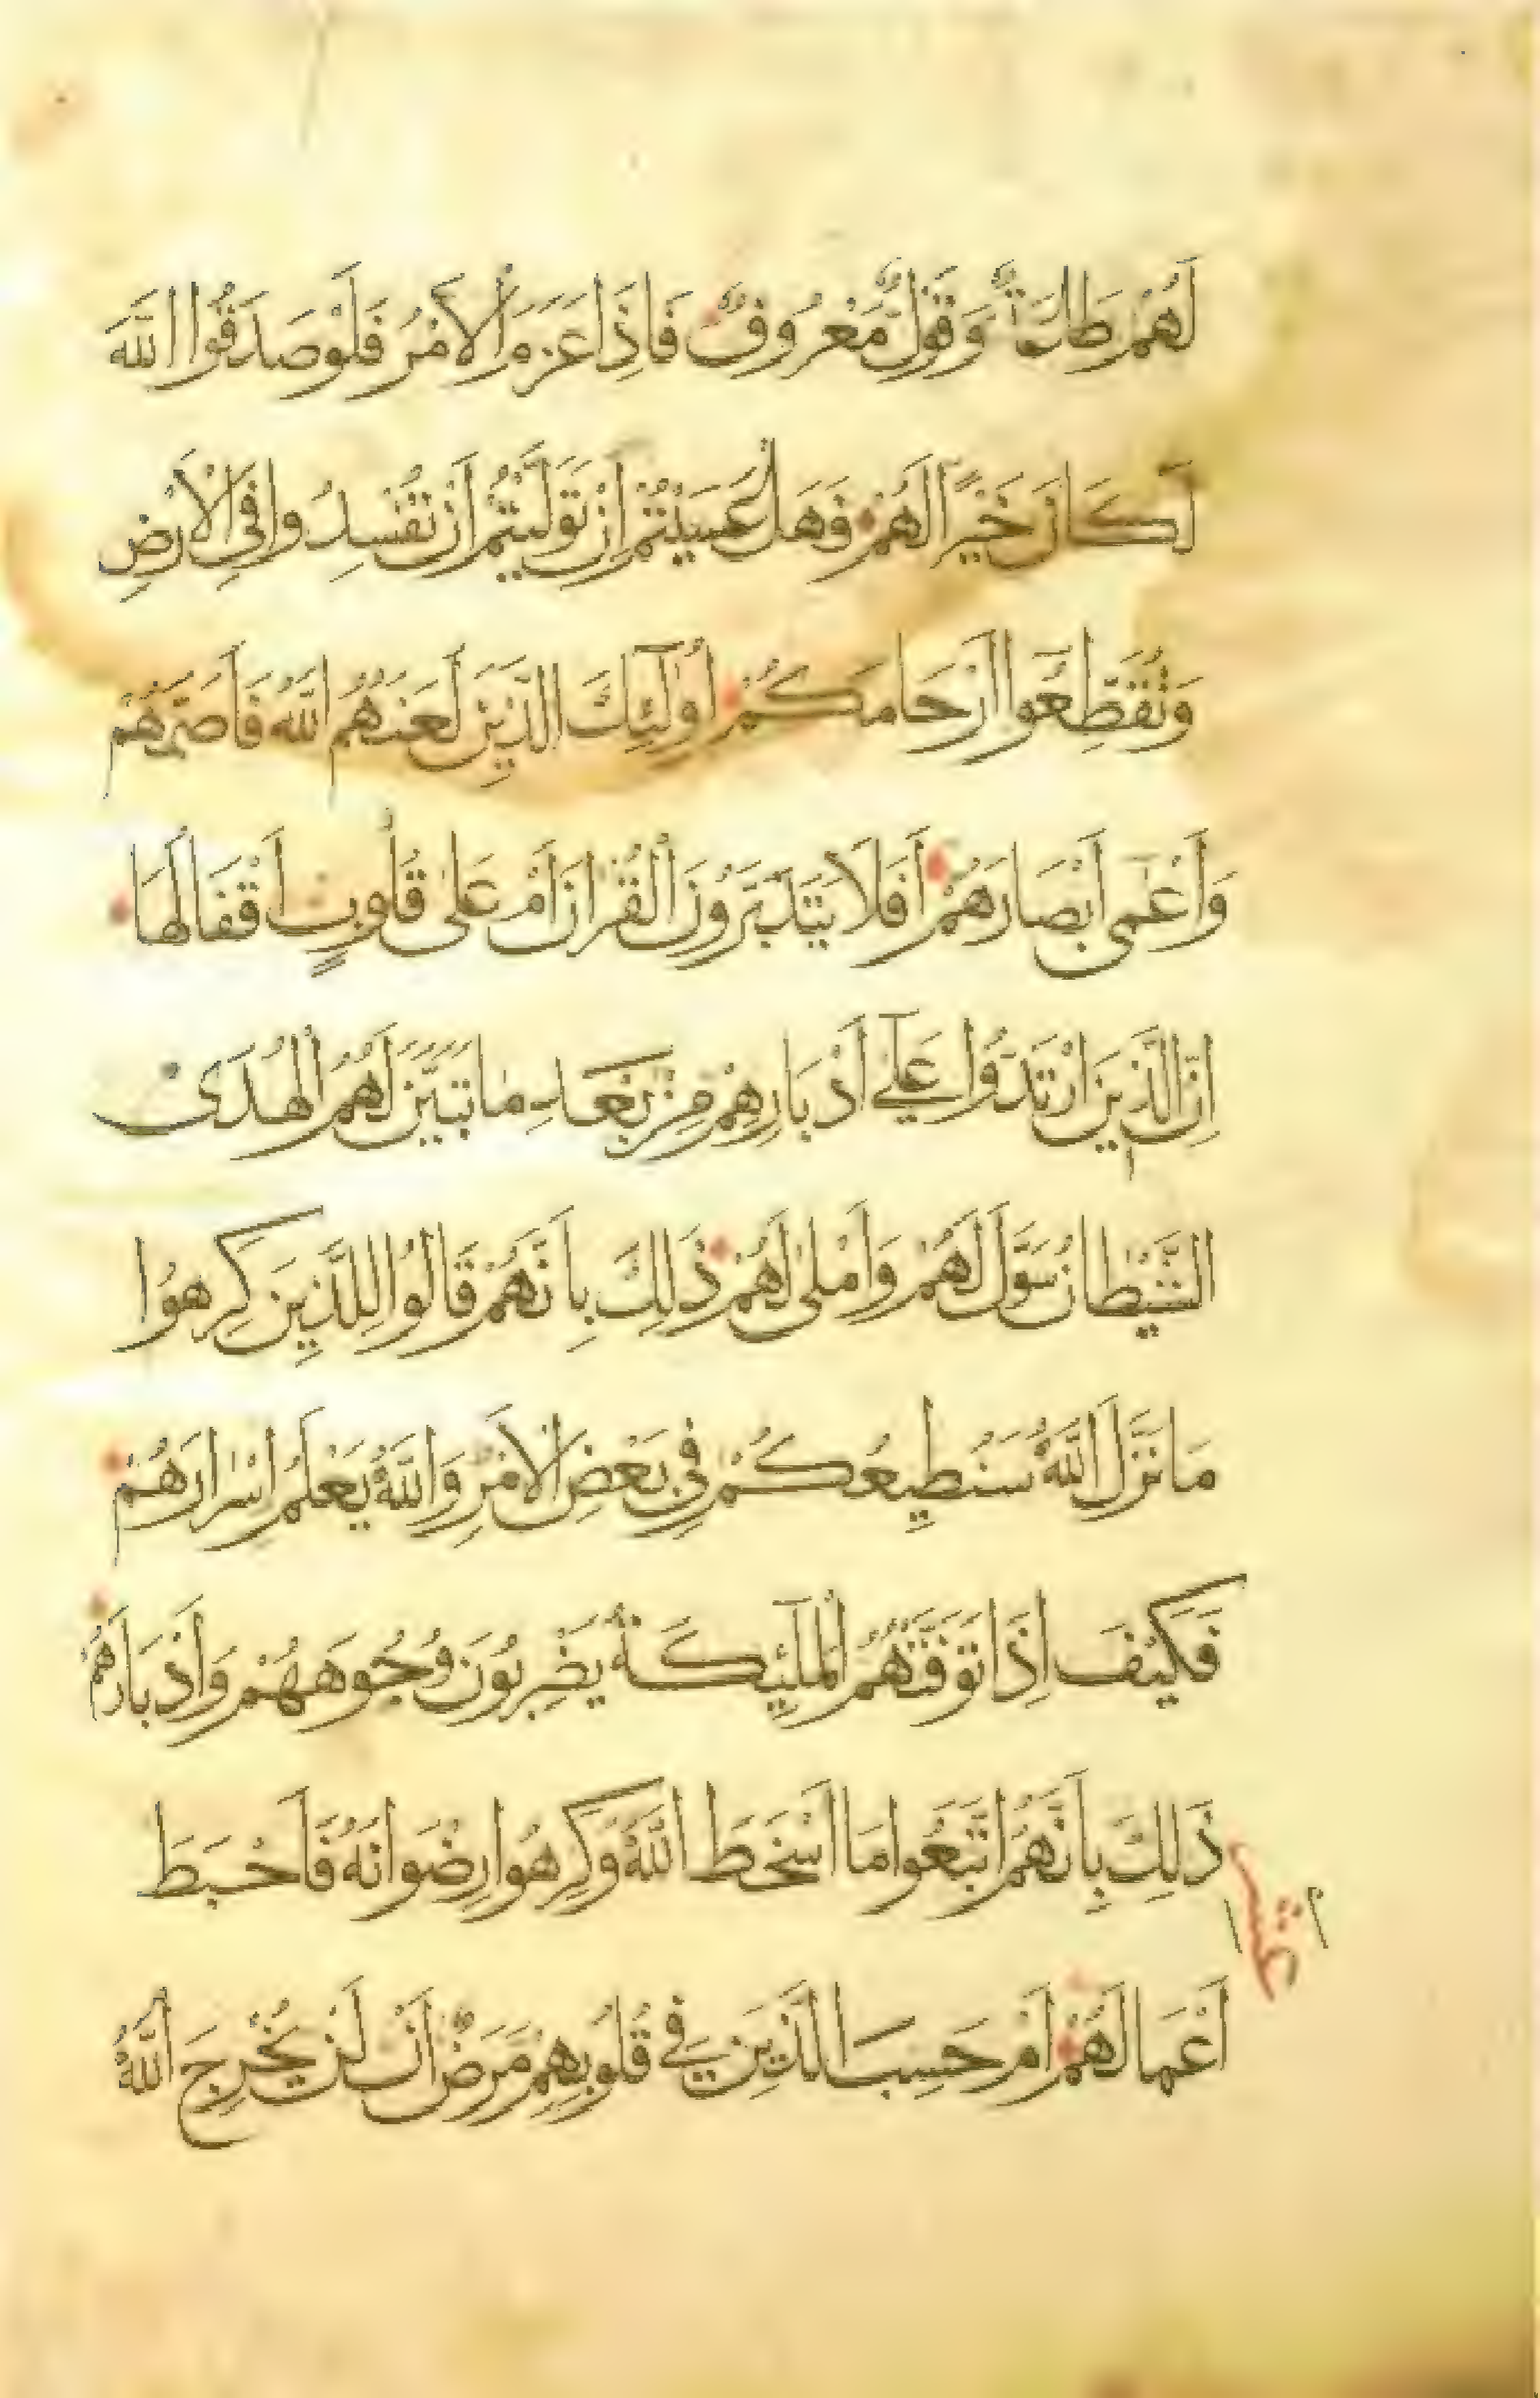 لَهُمْ طَاعَةٌ وَقَوْلٌ مَعْرُوفٌ فَاِذَا عَزَمَ الْاَمْرُ فَلَوْ صَدَقُوا اللّٰهَ
لَكَانَ خَيْرًا لَهُمْ فَهَلْ عَسَيْتُمْ اِنْ تَوَلَّيْتُمْ اَنْ تُفْسِدُوا فِي الْاَرْضِ
وَتُقَطِّعُوا اَرْحَامَكُمْ اُولٰٓئِكَ الَّذِينَ لَعَنَهُمُ اللّٰهُ فَاَصَمَّهُمْ
وَاَعْمٰٓى اَبْصَارَهُمْ اَفَلَا يَتَدَبَّرُونَ الْقُرْاٰنَ اَمْ عَلٰى قُلُوبٍ اَقْفَالُهَا
اِنَّ الَّذِينَ ارْتَدُّوا عَلٰٓى اَدْبَارِهِمْ مِنْ بَعْدِ مَا تَبَيَّنَ لَهُمُ الْهُدَى
الشَّيْطَانُ سَوَّلَ لَهُمْ وَاَمْلٰى لَهُمْ ذٰلِكَ بِاَنَّهُمْ قَالُوا لِلَّذِينَ كَرِهُوا
مَا نَزَّلَ اللّٰهُ سَنُطِيعُكُمْ فِي بَعْضِ الْاَمْرِ وَاللّٰهُ يَعْلَمُ اِسْرَارَهُمْ
فَكَيْفَ اِذَا تَوَفَّتْهُمُ الْمَلٰٓئِكَةُ يَضْرِبُونَ وُجُوهَهُمْ وَاَدْبَارَهُمْ
ذٰلِكَ بِاَنَّهُمُ اتَّبَعُوا مَا اَسْخَطَ اللّٰهَ وَكَرِهُوا رِضْوَانَهُ فَاَحْبَطَ
اَعْمَالَهُمْ اَمْ حَسِبَ الَّذِينَ فِي قُلُوبِهِمْ مَرَضٌ اَنْ لَنْ يُخْرِجَ اللّٰهُ